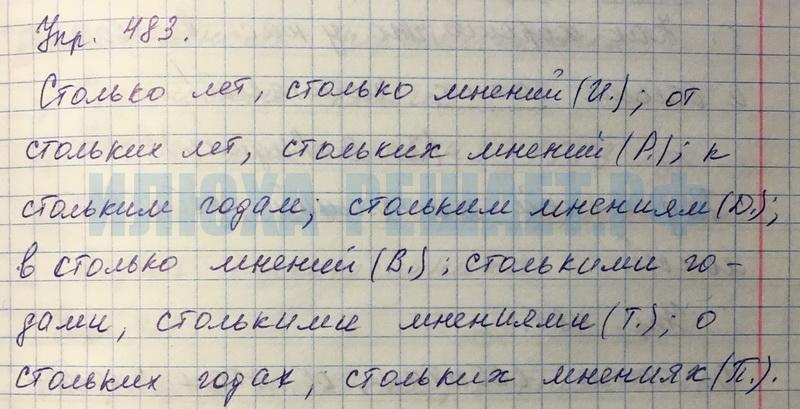 Упр. 483.
Столько лет, столько мнений (И.); от
стольких лет, стольких мнений (Р.); к
ИЛЮХА-РЕШАЕТ.РФ
стольким годам; стольким мнениям (Д.);
в столько мнений (В.); столькими го-
дами, столькими мнениями (Т.); о
стольких годах, стольких мнениях (П.).